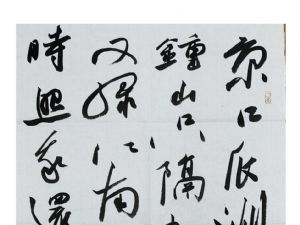 京口瓜洲
鍾山只隔
又绿江南
時照我還